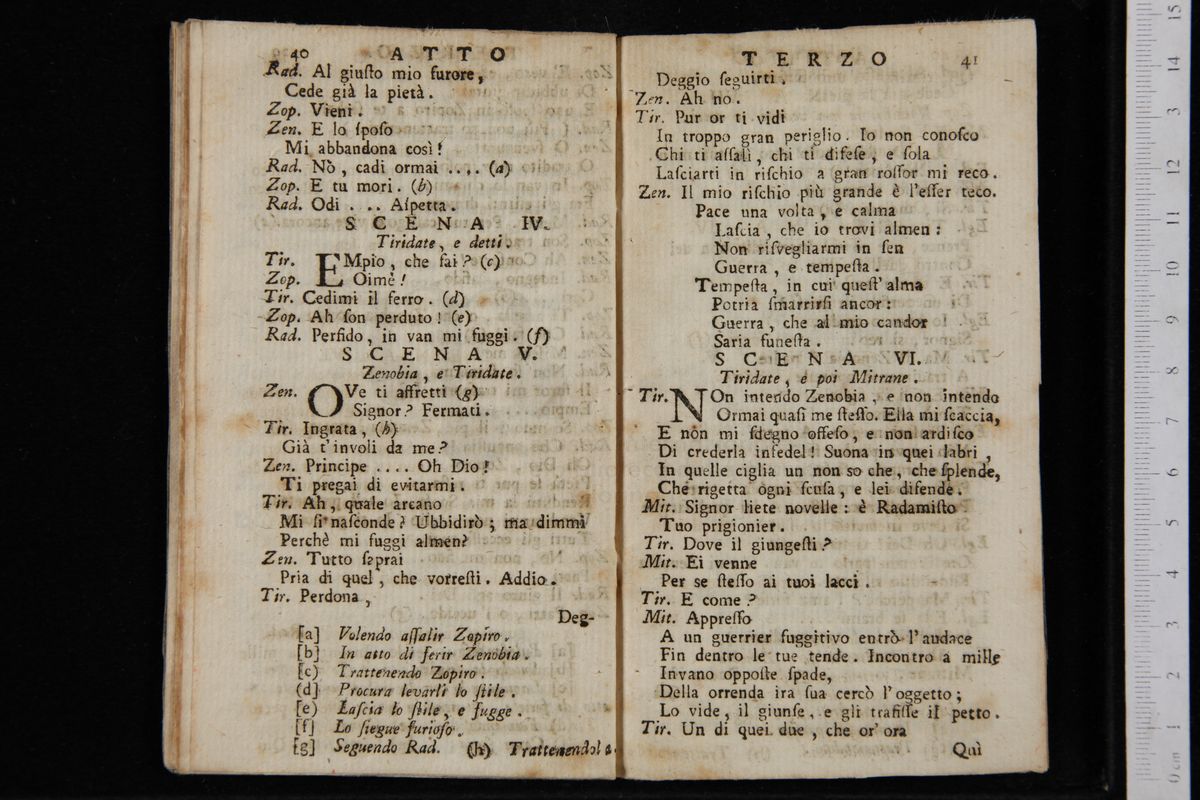 40 ATTO
Rad. Al giuſto mio furore,
Cede già la pietà.
Zop. Vieni.
Zen. E lo ſpoſo
Mi abbandona così!
Rad. Nò, cadi ormai .... (a)
Zop. E tu mori. (b)
Rad. Odi ... Aſpetta.
SCENA IV.
Tiridate, e detti.
Tir. EMpio, che fai? (c)
Zop. Oimè!
Tir. Cedimi il ferro. (d)
Zop. Ah ſon perduto! (e)
Rad. Perfido, in van mi fuggi. (f)
SCENA V.
Zenobia, e Tiridate.
Zen. OVe ti affretti (g)
Signor? Fermati.
Tir. Ingrata, (h)
Già t'involi da me?
Zen. Principe .... Oh Dio!
Ti pregai di evitarmi.
Tir. Ah, quale arcano
Mi ſi naſconde? Ubbidirò; ma dimmi
Perchè mi fuggi almen?
Zen. Tutto ſaprai
Pria di quel, che vorreſti. Addio.
Tir. Perdona,
Deg-
[a] Volendo aſſalir Zopiro.
[b] In atto di ferir Zenobia.
[c) Trattenendo Zopiro.
(d] Procura levarli lo ſtile.
[e) Laſcia lo ſtile, e fugge.
[f] Lo ſiegue furioſo.
[g] Seguendo Rad. (h) Trattenendola.
TERZO 41
Deggio ſeguirti.
Zen. Ah no.
Tir. Pur or ti vidi
In troppo gran periglio. Io non conoſco
Chi ti aſſalì, chi ti difeſe, e ſola
Laſciarti in riſchio a gran roſſor mi reco.
Zen. Il mio riſchio più grande è l'eſſer teco.
Pace una volta, e calma
Laſcia, che io trovi almen:
Non riſvegliarmi in ſen
Guerra, e tempeſta.
Tempeſta, in cui queſt'alma
Potria ſmarrirſi ancor:
Guerra, che al mio candor
Saria funeſta.
SCENA VI.
Tiridate, e poi Mitrane.
Tir. NOn intendo Zenobia, e non intendo
Ormai quaſi me ſteſſo. Ella mi ſcaccia,
E non mi ſdegno offeſo, e non ardiſco
Di crederla infedel! Suona in quei labri,
In quelle ciglia un non so che, che ſplende,
Che rigetta ogni ſcuſa, e lei difende.
Mit. Signor liete novelle: è Radamiſto
Tuo prigionier.
Tir. Dove il giungeſti?
Mit. Ei venne
Per se ſteſſo ai tuoi lacci.
Tir. E come?
Mit. Appreſſo
A un guerrier fuggitivo entrò l'audace
Fin dentro le tue tende. Incontro a mille
Invano oppoſte ſpade,
Della orrenda ira ſua cercò l'oggetto;
Lo vide, il giunſe, e gli trafiſſe il petto.
Tir. Un di quei due, che or'ora
Quì
0 cm 1 2 3 4 5 6 7 8 9 10 11 12 13 14 15